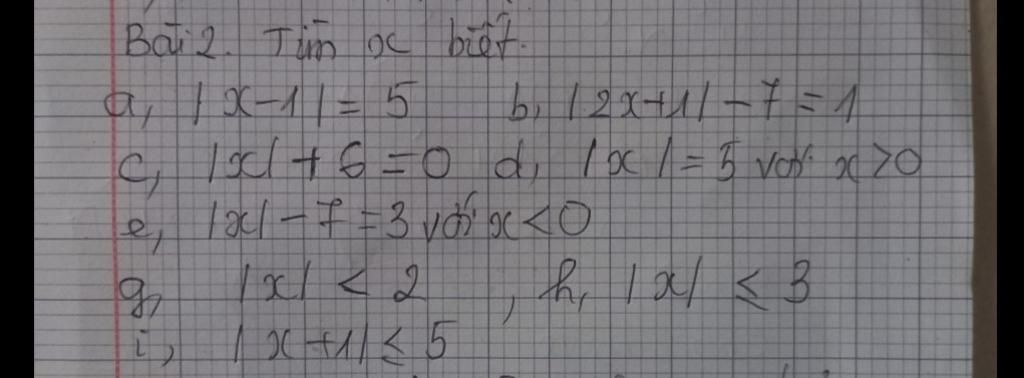 Bài 2. Tìm x biết.
a, |x-1| = 5 b, |2x+1| - 7 = 1
c, |x| + 6 = 0 d, |x| = 5 với x > 0
e, |x| - 7 = 3 với x < 0
g, |x| < 2 , h, |x| ≤ 3
i, |x+1| ≤ 5